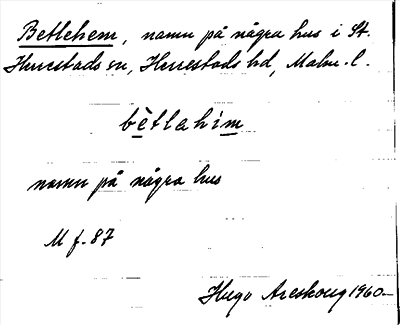 Betlehem, namn på några hus i St.
Herrestads sn, Herrestads hd, Malm. l.
bètlahìm
namn på några hus
M f. 87
Hugo Areskoug 1960.